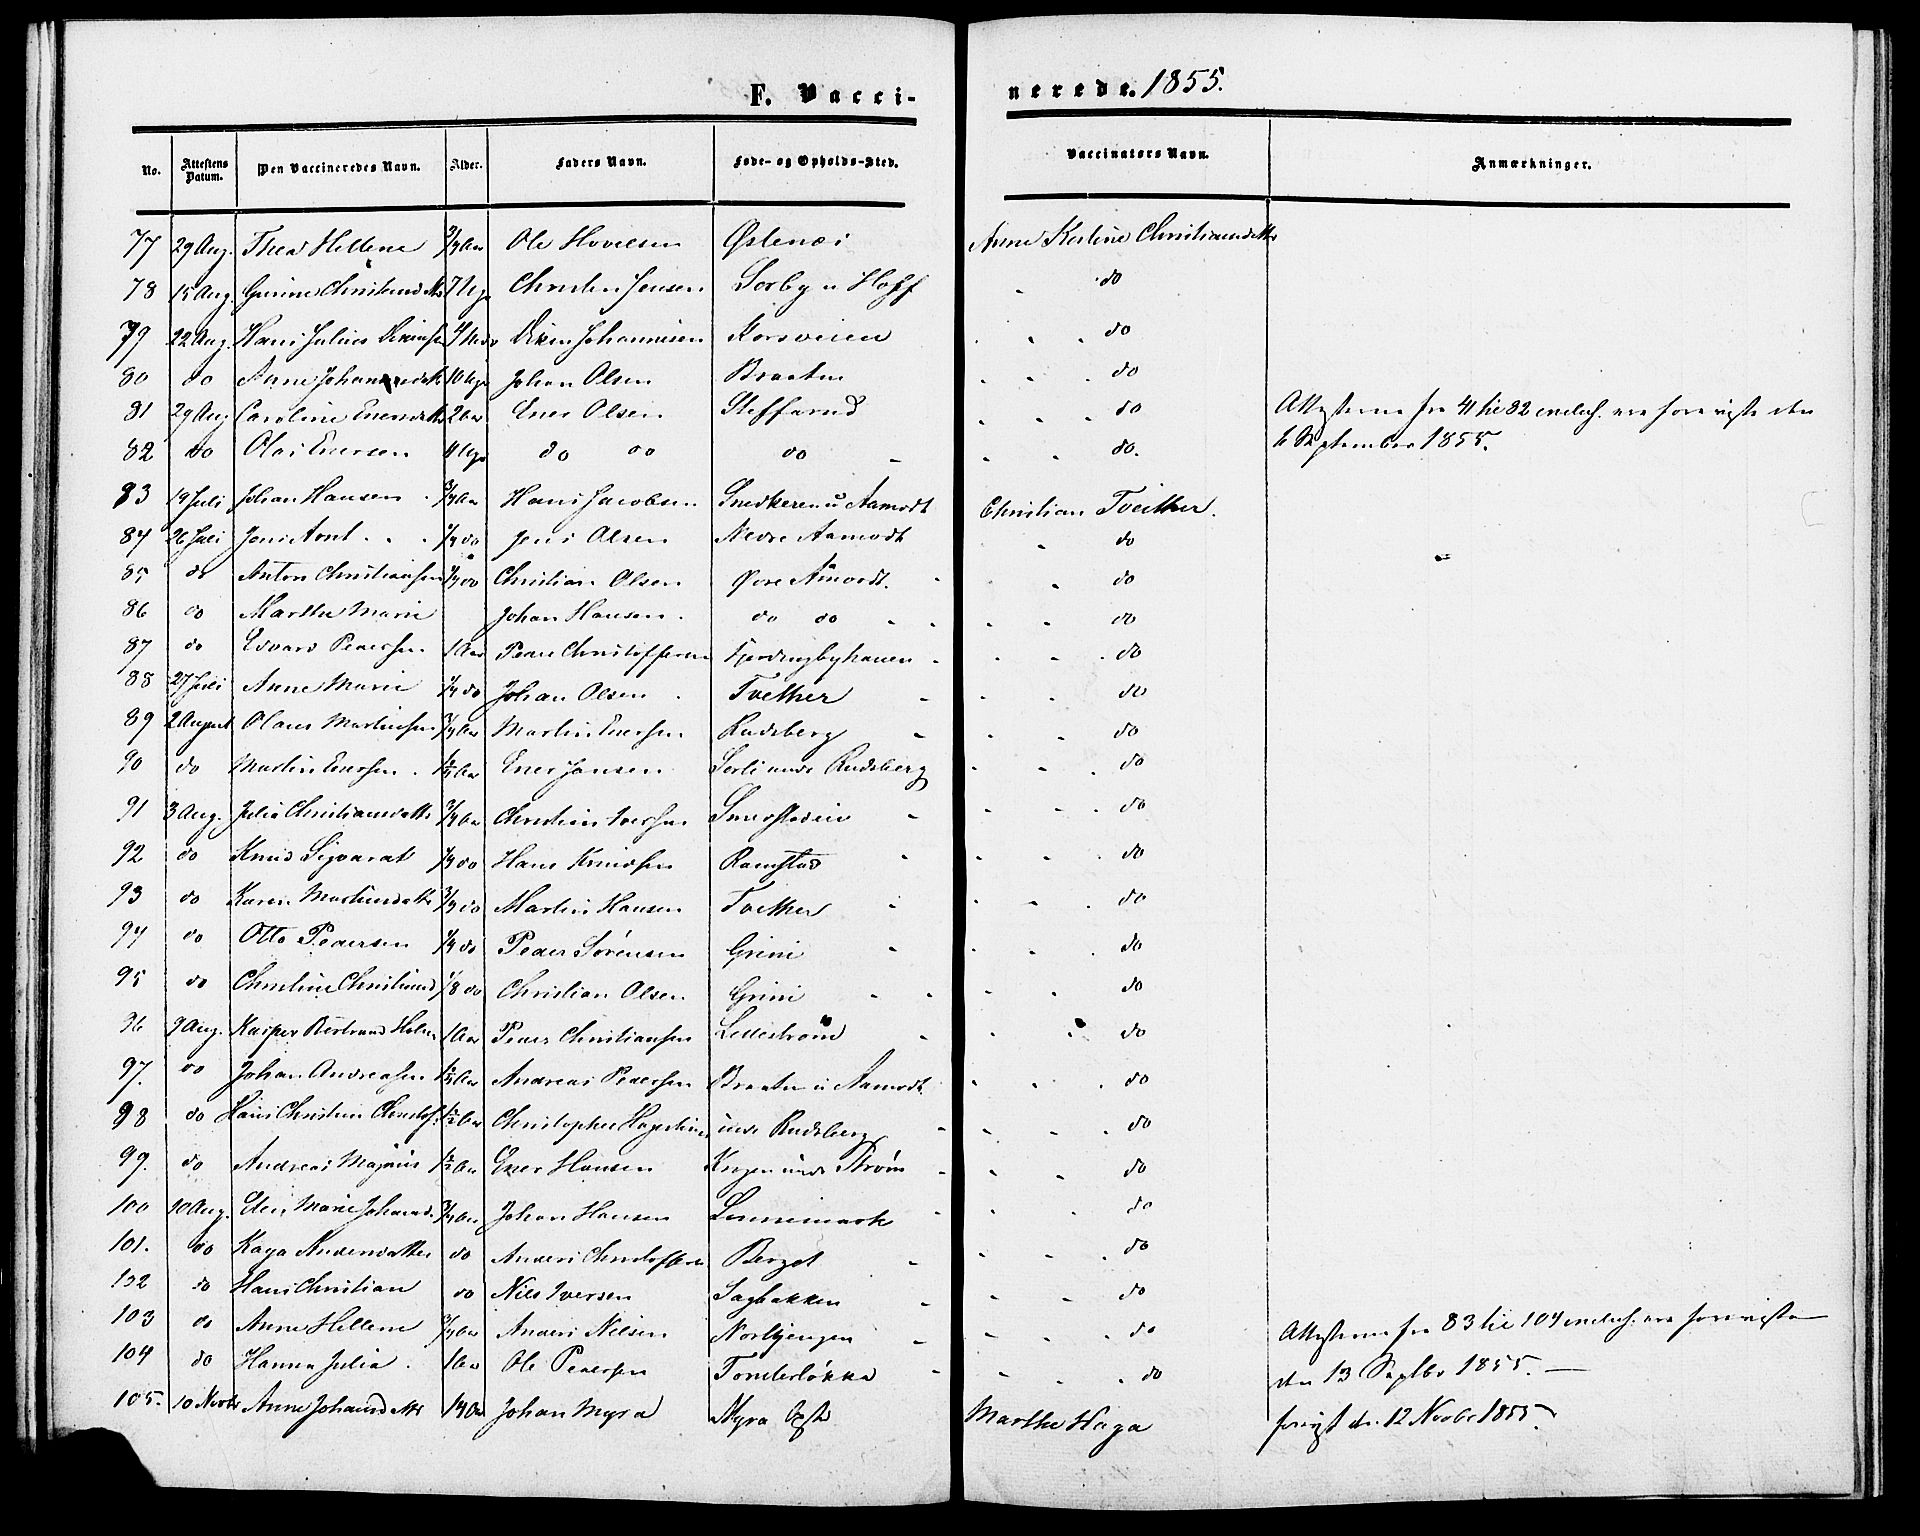 F. Vacci-
nerede. 1855.
No. Attestens Datum. Den Vaccineredes Navn. Alder. Faders Navn. Føde- og Opholds-Sted. Vaccinators Navn. Anmærkninger.
77 29 Aug. Thea Hellene 3/4 Aar Ole Østenøi Anne Kirstine Christiansdatter
78 15 Aug. Gurine 7 Uger Christen Jensen Sorby u Hoff do
79 22 Aug. Hans Julius 4 Johannesen Korsveien do
80 do Anne 10 Uger Johan Olsen Braaten do
81 29 Aug Caroline Enersdatter 2 Aar Ener Olsen Steffarud do Attesterne fra 41 til 82 inclus. ere foreviste den
82 do Olai Enersen 4 Uger do do do do. 6 September 1855.
83 19 Juli Johan Hansen 3/4 Aar Hans Jacobsen Snedkeren u Aamodt Christian Tveither.
84 26 Juli Jens Arnt 1/4 do Jens Olsen Nedre Aamodt do
85 do Anton Christiansen 1/4 do Christian Olsen Øvre Åmodt. do
86 do Marthe Marie Johan Hansen do do do
87 do Edvard Pedersen 1 Aar Peder Christoffersen Fjerdingbyhauen do
88 27 Juli Anne Marie 1/4 do Johan Olsen Tveither do
89 2 August Olaus Martinsen 3/4 Aar Martin Enersen Rudsberg do
90 do Martin Enersen 1/2 Aar Ener Jansen Sorli unde Rudsberg do
91 3 Aug. Julie Christiansdatter 3/4 Aar Christian Iversen do
92 do Knud Sigvarat 1/4 do Hans Knudsen Ramstad do
93 do Karen Martinsdatter 3/4 do Martin Hansen Tveither do
94 do Otto Pedersen 1/4 do Peder Sørensen Grini do
95 do Christine Christiansd 1/8 do Christian Olsen Grini do
96 9 Aug. Kasper Bertrand Holm 1 Aar Peder Christiansen Lillestrøm do
97. do Johan Andreasen 1/2 Aar Andreas Pedersen Braaten u Aamodt do
98 do Hans Christian Christof. 1/2 Aar Christopher unde Rudsberg do
99. do Andreas Magnus 1/2 Aar Ener Hansen Krogen unde Strøm do
100 10 Aug. Elen Marie Johansd. 3/4 Aar Johan Hansen do
101. do Kaya Andersdatter do Anders Christoffersen Berget do
102 do Hans Christian do Nils Iversen Sagbakken do
103 do Anne Hellene 3/4 Aar Anders Nilsen do Attesterne fra 83 til 104 inclus. ere foreviste
104 do Hanna Julia 1 Aar Ole Pedersen Tonderløkka do den 13 Septbr 1855.
105. 10 Novbr Anne Johansdatter 1/4 Aar Johan Myra Myra Marthe Haga forevist den 12 Novbr 1855